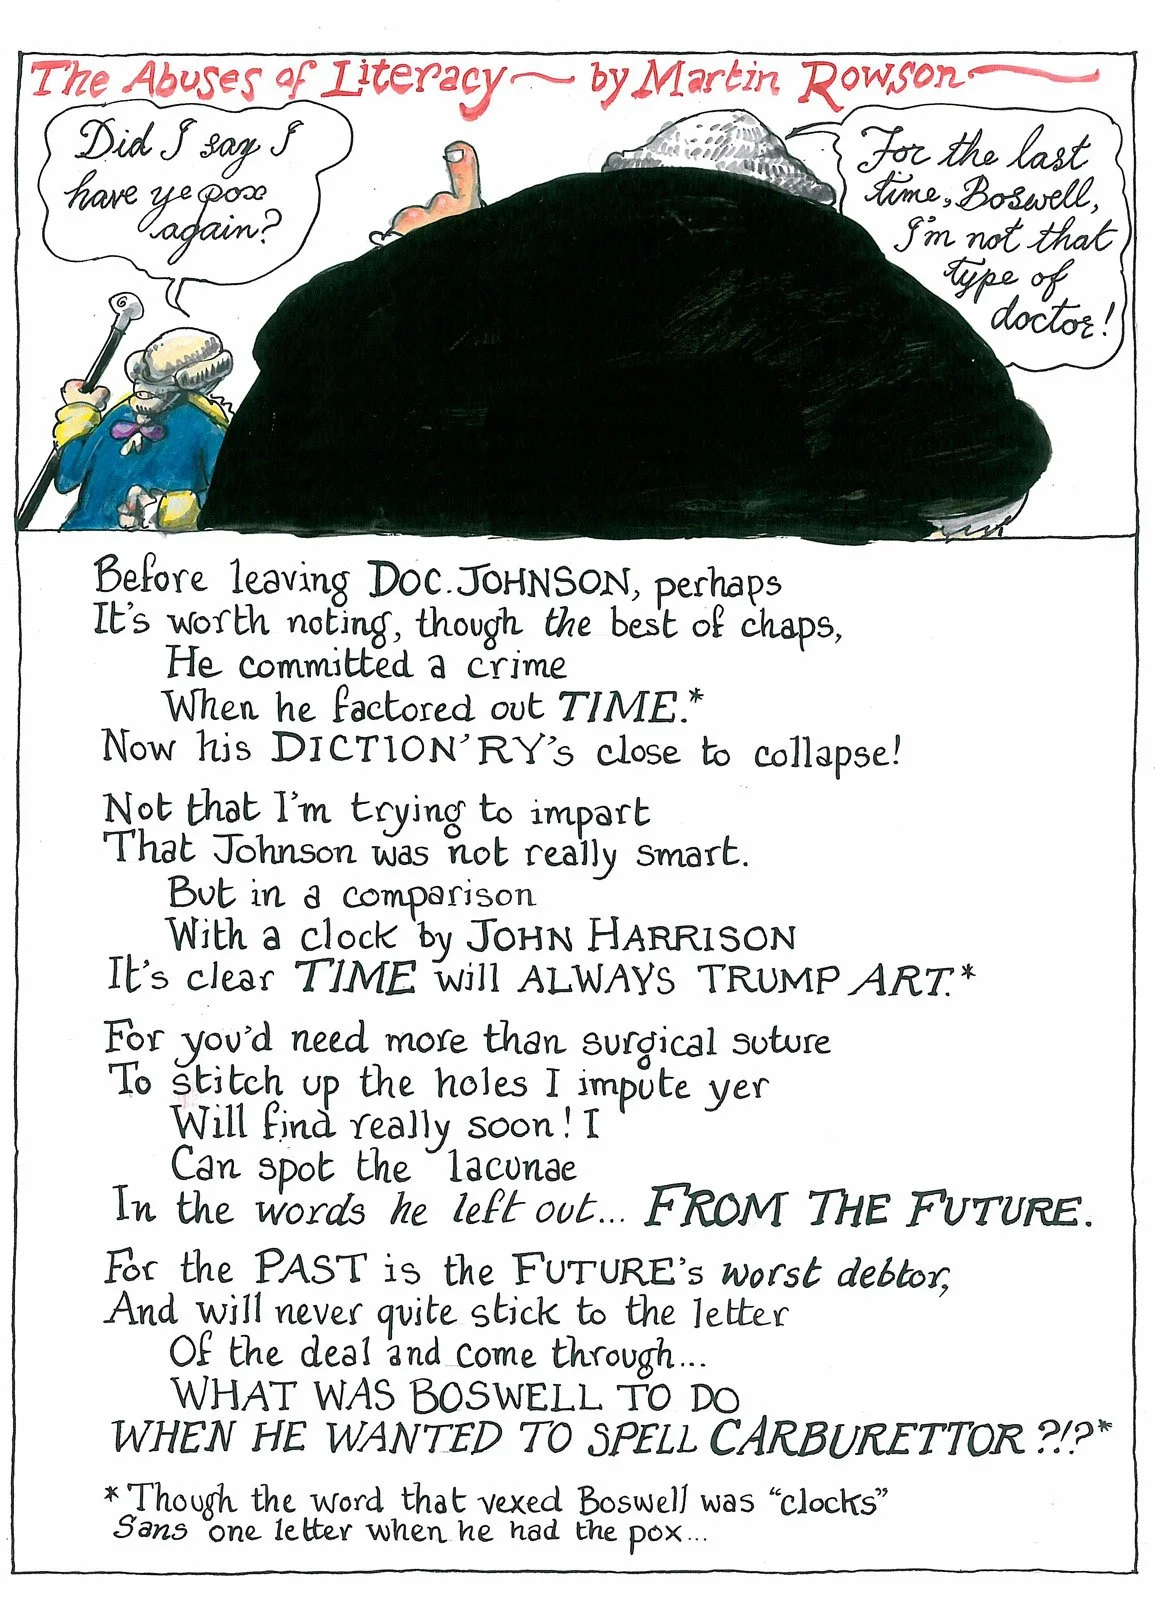 The Abuses of Literacy ~ by Martin Rowson
Did I say I
have ye pox
again?
For the last
time, Boswell,
I'm not that
type of
doctor!
Before leaving DOC. JOHNSON, perhaps
It's worth noting, though the best of chaps,
He committed a crime
When he factored out TIME.*
Now his DICTION'RY's close to collapse!
Not that I'm trying to impart
That Johnson was not really smart.
But in a comparison
With a clock by JOHN HARRISON
It's clear TIME will ALWAYS TRUMP ART.*
For you'd need more than surgical suture
To stitch up the holes I impute yer
Will find really soon! I
Can spot the lacunae
In the words he left out... FROM THE FUTURE.
For the PAST is the FUTURE's worst debtor,
And will never quite stick to the letter
Of the deal and come through...
WHAT WAS BOSWELL TO DO
WHEN HE WANTED TO SPELL CARBURETTOR?!?*
*Though the word that vexed Boswell was "clocks"
Sans one letter when he had the pox...